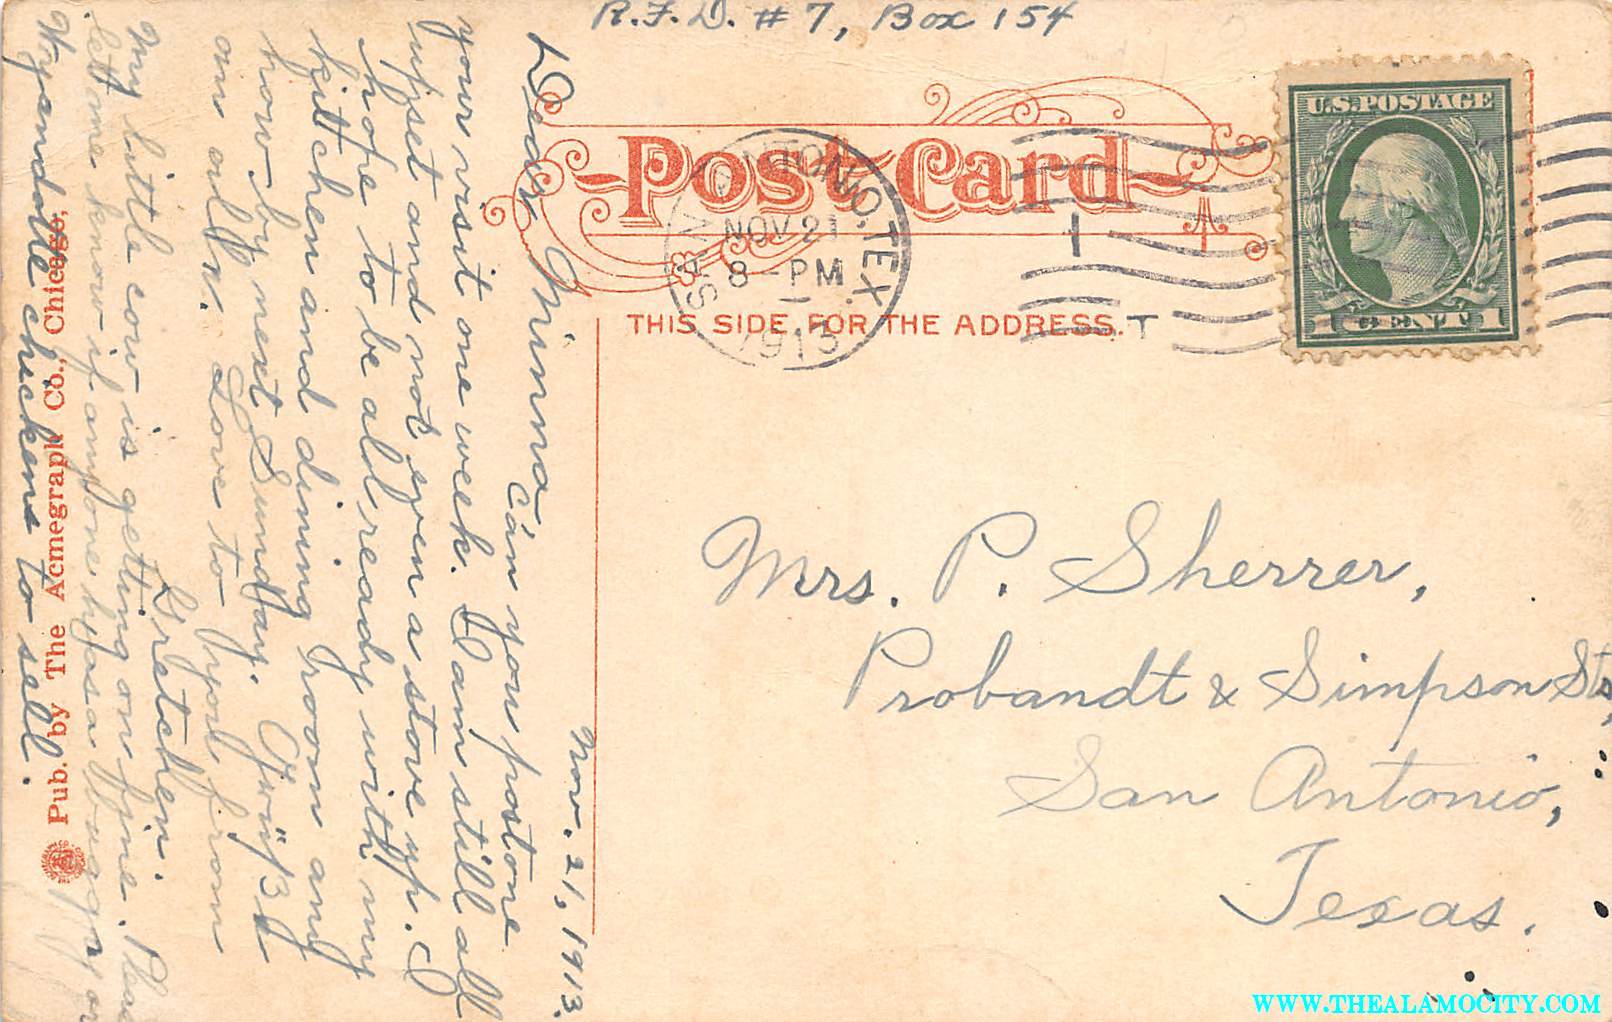 R.F.D. #7, Box 154
Post Card
THIS SIDE FOR THE ADDRESS.
SAN ANTONIO, TEX.
NOV 21
8-PM
1913
1
T
U.S. POSTAGE
1 CENT 1
Nov. 21, 1913.
Dear Minna,
Can you postone
your visit one week. I am still all
upset and not even a stove up. I
hope to be all ready with my
kitchen and dining room any
how by next Sunday. Grüß
an alln. Love to you from
Gretchen.
My little cow is getting on fine. Pleas
let me know if anyone hyas a buggy or
Wyandotte chickens to sell.
Pub. by The Acmegraph Co., Chicago,
Mrs. P. Sherrer,
Probandt & Simpson Sts,
San Antonio,
Texas.
WWW.THEALAMOCITY.COM